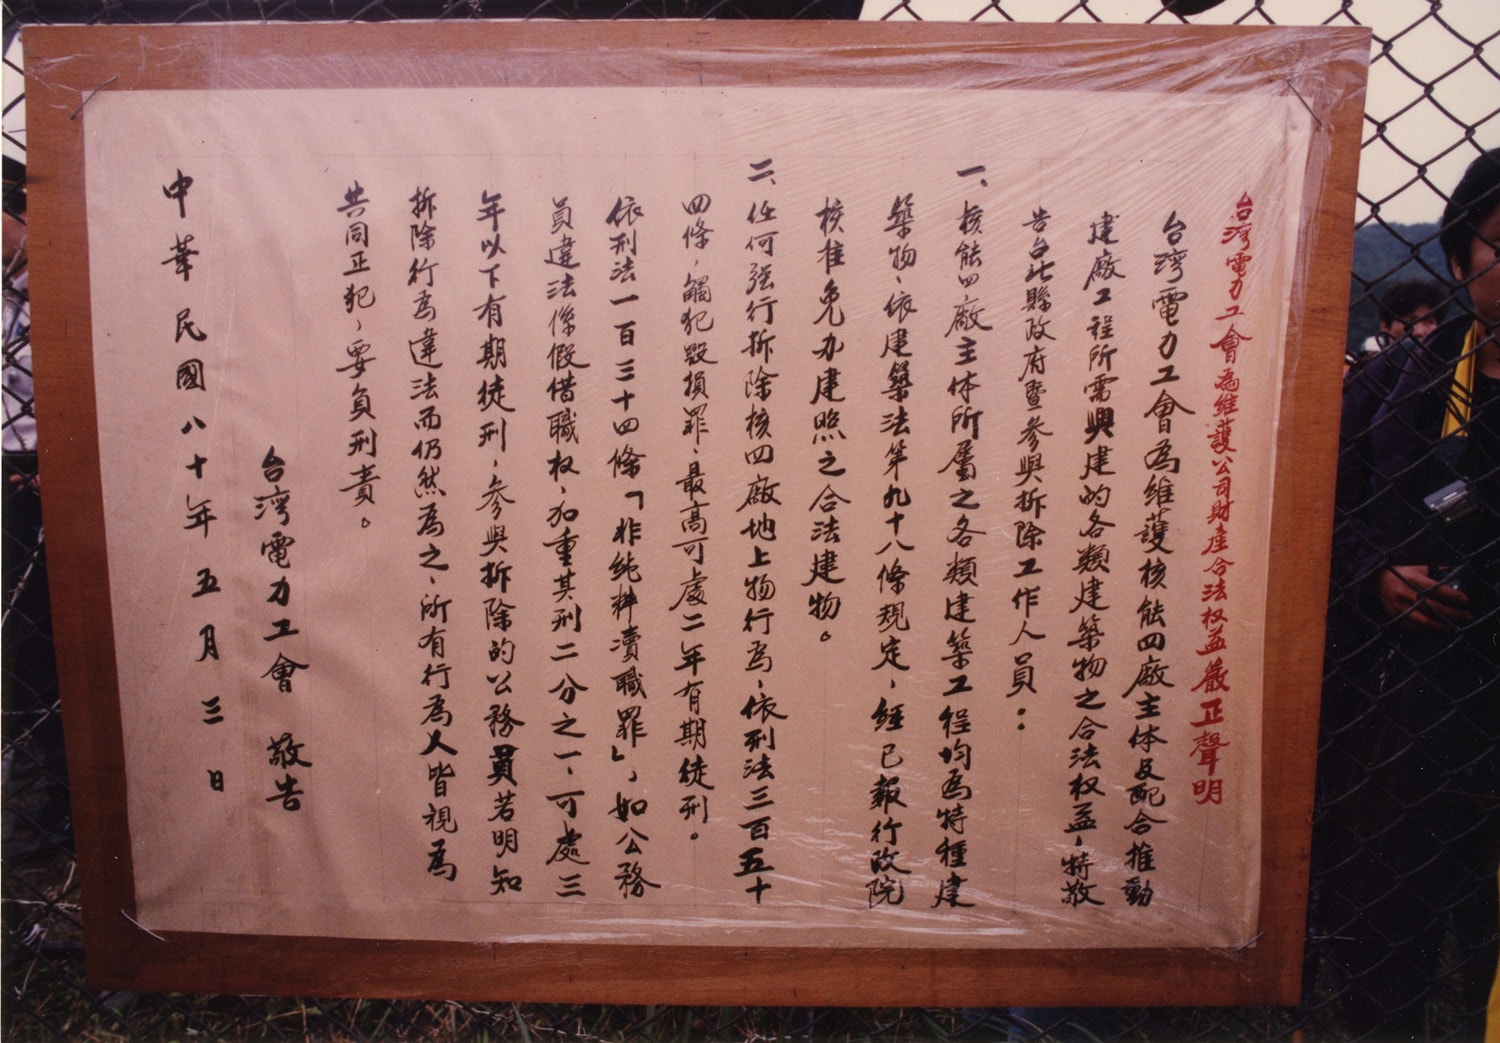 台灣電力工會為維護公司財產合法权益嚴正聲明
台灣電力工會為維護核能四廠主体及配合推動
建廠工程所需興建的各類建築物之合法权益，特敬
告台北縣政府暨參與拆除工作人員：
一、核能四廠主体所屬之各類建築工程均為特種建
築物，依建築法第九十八條規定，經已報行政院
核准免办建照之合法建物。
二、任何強行拆除核四廠地上物行為，依刑法三百五十
四條，觸犯毀損罪，最高可處二年有期徒刑。
依刑法一百三十四條「非純粹瀆職罪」，如公務
員違法係假借職权，加重其刑二分之一，可處三
年以下有期徒刑，參與拆除的公務員若明知
拆除行為違法而仍然為之，所有行為人皆視為
共同正犯，要負刑責。
台灣電力工會 敬告
中華民國八十年五月三日